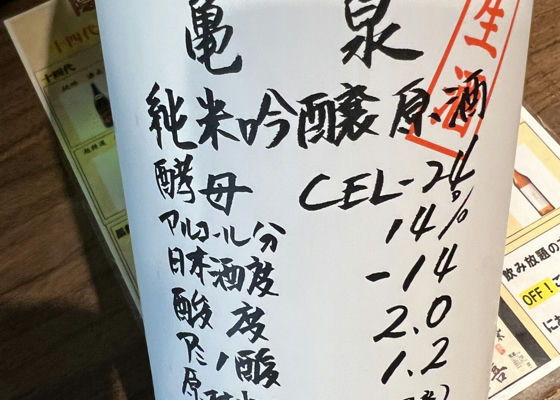 亀泉
生酒
純米吟醸原酒
酵母 CEL-24
アルコール分 14%
日本酒度 -14
酸度 2.0
アミノ酸 1.2
十四代
飲み放題の
OFF!